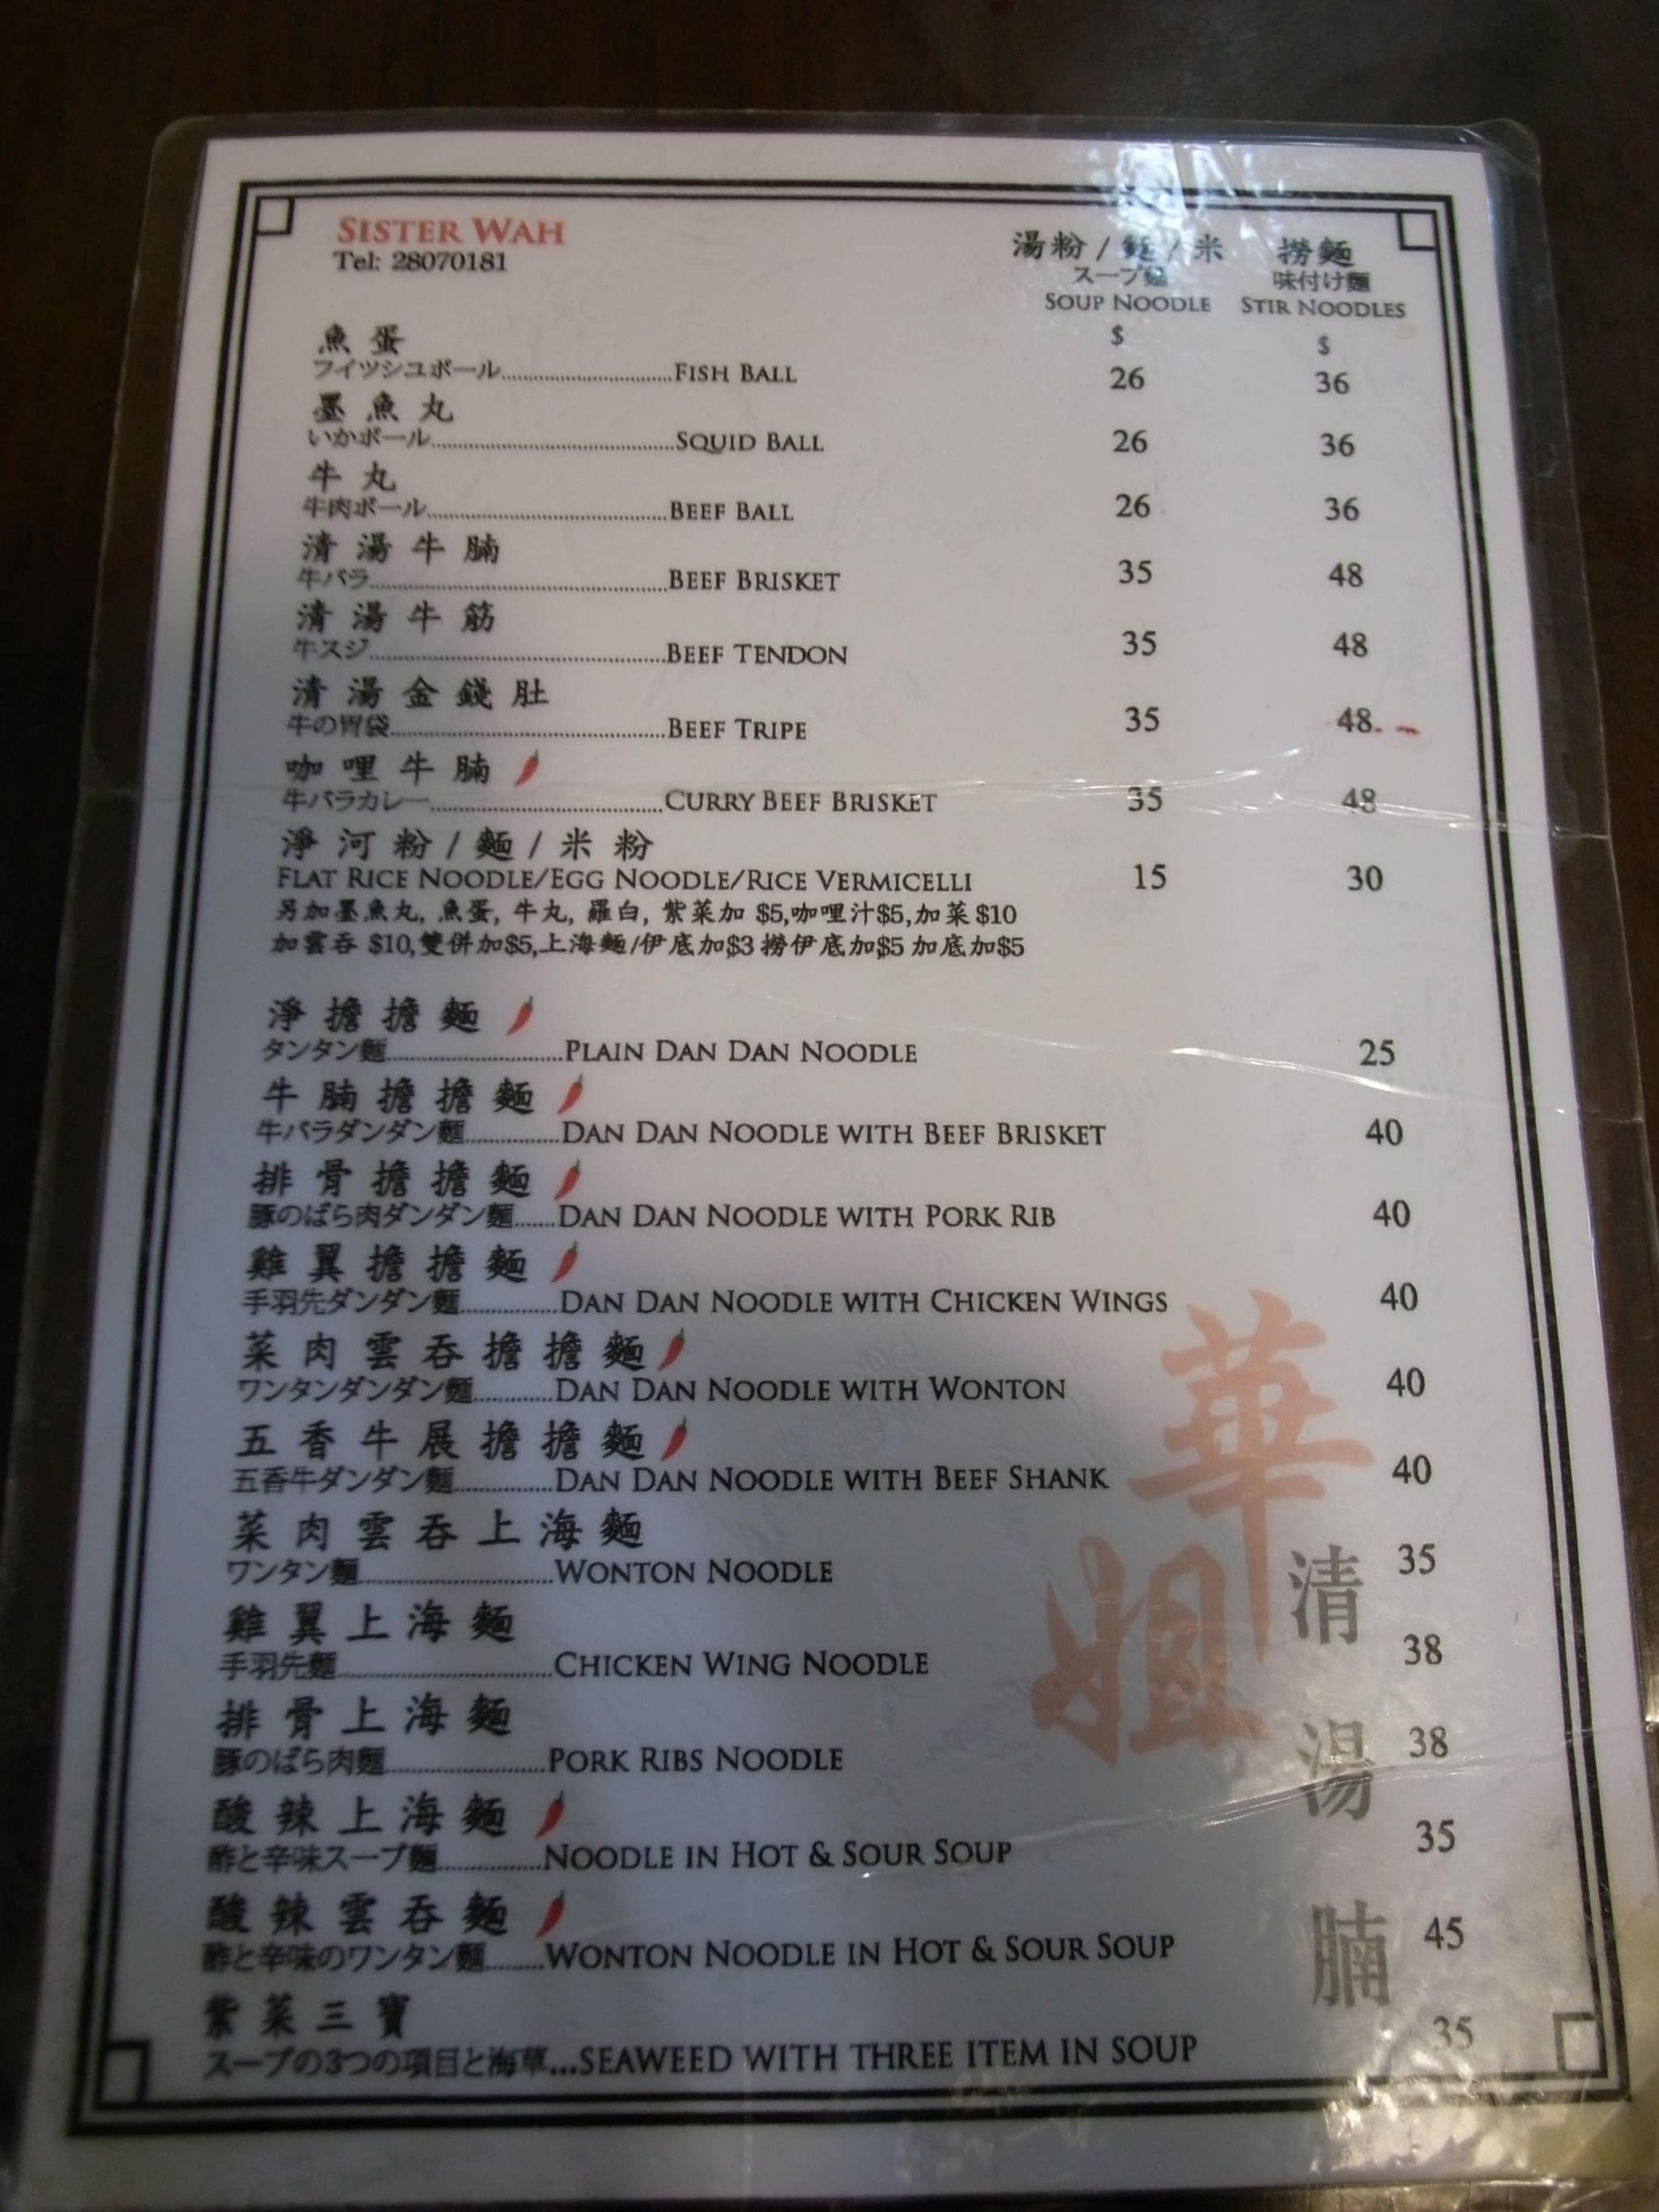 SISTER WAH
Tel: 28070181
湯粉 / 麵 / 米 撈麵
スープ麵 味付け麵
SOUP NOODLE STIR NOODLES
$ $
魚蛋
フイツシユボール..............................FISH BALL 26 36
墨魚丸
いかボール..............................SQUID BALL 26 36
牛丸
牛肉ボール..............................BEEF BALL 26 36
清湯牛腩
牛バラ..............................BEEF BRISKET 35 48
清湯牛筋
牛スジ..............................BEEF TENDON 35 48
清湯金錢肚
牛の胃袋..............................BEEF TRIPE 35 48
咖哩牛腩
牛バラカレー..............................CURRY BEEF BRISKET 35 48
淨河粉 / 麵 / 米粉
FLAT RICE NOODLE/EGG NOODLE/RICE VERMICELLI 15 30
另加墨魚丸, 魚蛋, 牛丸, 羅白, 紫菜加 $5,咖哩汁$5,加菜$10
加雲吞 $10,雙併加$5,上海麵/伊底加$3 撈伊底加$5 加底加$5
淨擔擔麵
タンタン麵..............................PLAIN DAN DAN NOODLE 25
牛腩擔擔麵
牛バラダンダン麵................DAN DAN NOODLE WITH BEEF BRISKET 40
排骨擔擔麵
豚のばら肉ダンダン麵.......DAN DAN NOODLE WITH PORK RIB 40
雞翼擔擔麵
手羽先ダンダン麵................DAN DAN NOODLE WITH CHICKEN WINGS 40
菜肉雲吞擔擔麵
ワンタンダンダン麵.............DAN DAN NOODLE WITH WONTON 40
五香牛展擔擔麵
五香牛ダンダン麵................DAN DAN NOODLE WITH BEEF SHANK 40
菜肉雲吞上海麵
ワンタン麵..............................WONTON NOODLE 35
雞翼上海麵
手羽先麵..............................CHICKEN WING NOODLE 38
排骨上海麵
豚のばら肉麵..........................PORK RIBS NOODLE 38
酸辣上海麵
酢と辛味スープ麵.................NOODLE IN HOT & SOUR SOUP 35
酸辣雲吞麵
酢と辛味のワンタン麵.........WONTON NOODLE IN HOT & SOUR SOUP 45
紫菜三寶
スープの3つの項目と海草...SEAWEED WITH THREE ITEM IN SOUP 35
華姐
清湯腩